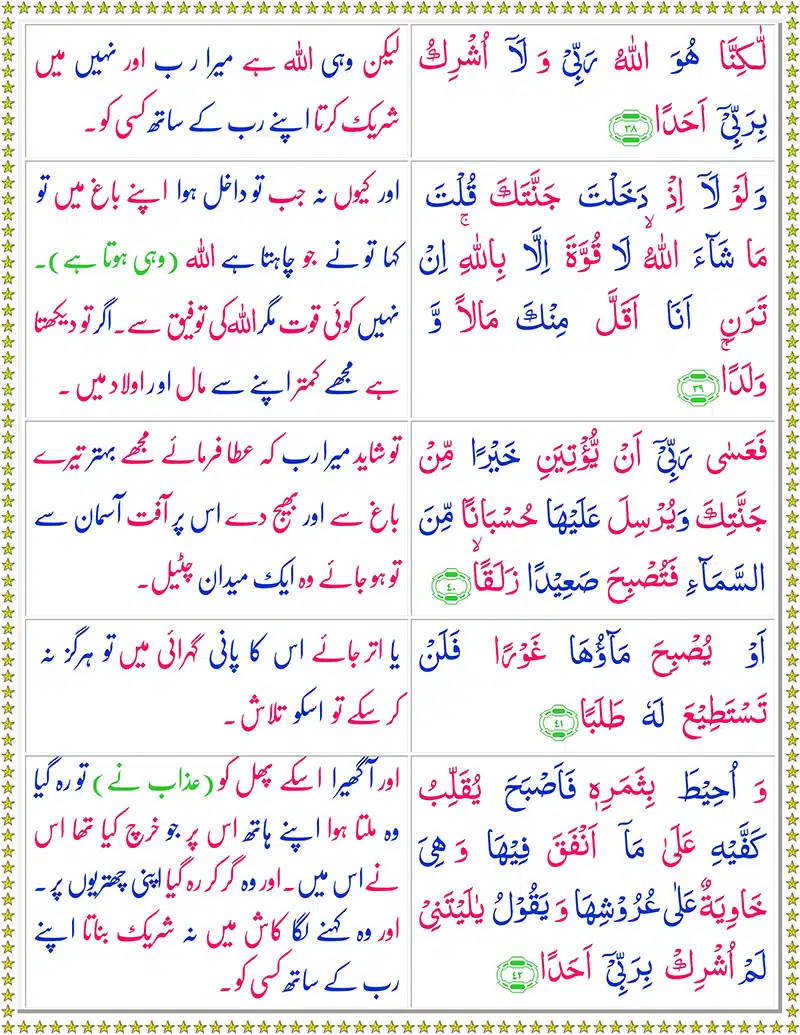 لٰكِنَّا۠ هُوَ اللّٰهُ رَبِّیْ وَ لَاۤ اُشْرِكُ
بِرَبِّیْۤ اَحَدًا ﴿۳۸﴾
لیکن وہی اللہ ہے میرا رب اور نہیں میں
شریک کرتا اپنے رب کے ساتھ کسی کو۔
وَ لَوْ لَاۤ اِذْ دَخَلْتَ جَنَّتَكَ قُلْتَ
مَا شَآءَ اللّٰهُ ۙ لَا قُوَّةَ اِلَّا بِاللّٰهِ ۚ اِنْ
تَرَنِ اَنَا اَقَلَّ مِنْكَ مَالًا وَّ
وَلَدًا ۚ﴿۳۹﴾
اور کیوں نہ جب تو داخل ہوا اپنے باغ میں تو
کہا تو نے جو چاہتا ہے اللہ (وہی ہوتا ہے)۔
نہیں کوئی قوت مگر اللہ کی توفیق سے۔ اگر تو دیکھتا
ہے مجھے کمتر اپنے سے مال اور اولاد میں ۔
فَعَسٰی رَبِّیْۤ اَنْ یُّؤْتِیَنِ خَیْرًا مِّنْ
جَنَّتِكَ وَیُرْسِلَ عَلَیْهَا حُسْبَانًا مِّنَ
السَّمَآءِ فَتُصْبِحَ صَعِیْدًا زَلَقًا ۙ﴿۴۰﴾
تو شاید میرا رب کہ عطا فرمائے مجھے بہتر تیرے
باغ سے اور بھیج دے اس پر آفت آسمان سے
تو ہو جائے وہ ایک میدان چٹیل۔
اَوْ یُصْبِحَ مَآؤُهَا غَوْرًا فَلَنْ
تَسْتَطِیْعَ لَهٗ طَلَبًا ﴿۴۱﴾
یا اتر جائے اس کا پانی گہرائی میں تو ہرگز نہ
کر سکے تو اسکو تلاش ۔
وَ اُحِیْطَ بِثَمَرِهٖ فَاَصْبَحَ یُقَلِّبُ
كَفَّیْهِ عَلٰی مَاۤ اَنْفَقَ فِیْهَا وَ هِیَ
خَاوِیَةٌ عَلٰی عُرُوْشِهَا وَ یَقُوْلُ یٰلَیْتَنِیْ
لَمْ اُشْرِكْ بِرَبِّیْۤ اَحَدًا ﴿۴۲﴾
اور آگھیرا اسکے پھل کو (عذاب نے) تو رہ گیا
وہ ملتا ہوا اپنے ہاتھ اس پر جو خرچ کیا تھا اس
نے اس میں۔ اور وہ گر کر رہ گیا اپنی چھتریوں پر ۔
اور وہ کہنے لگا کاش میں نہ شریک بناتا اپنے
رب کے ساتھ کسی کو۔